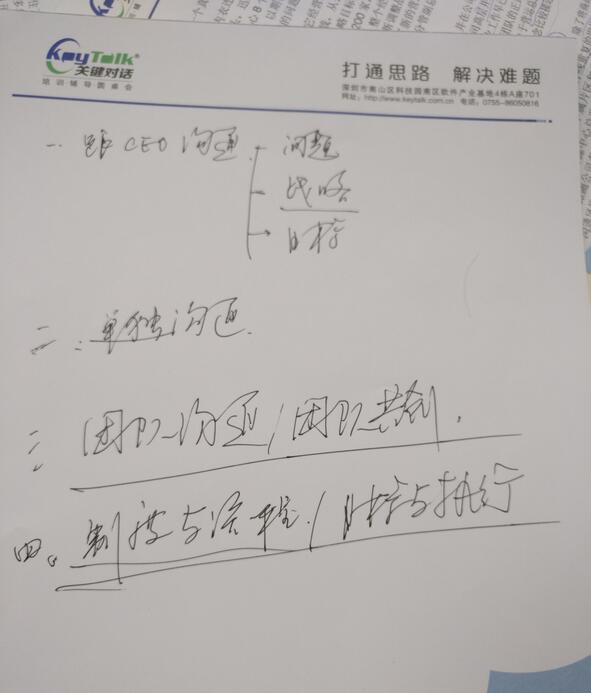 KeyTalk®
关键对话
培训辅导圆桌会
打通思路 解决难题
深圳市南山区科技园南区软件产业基地4栋A座701
网址：http://www.keytalk.com.cn 电话：0755-86050816
一. 跟CEO沟通 问题
战略
目标
二. 单独沟通.
三 团队沟通/团队共创.
四。制度与流程./目标与执行